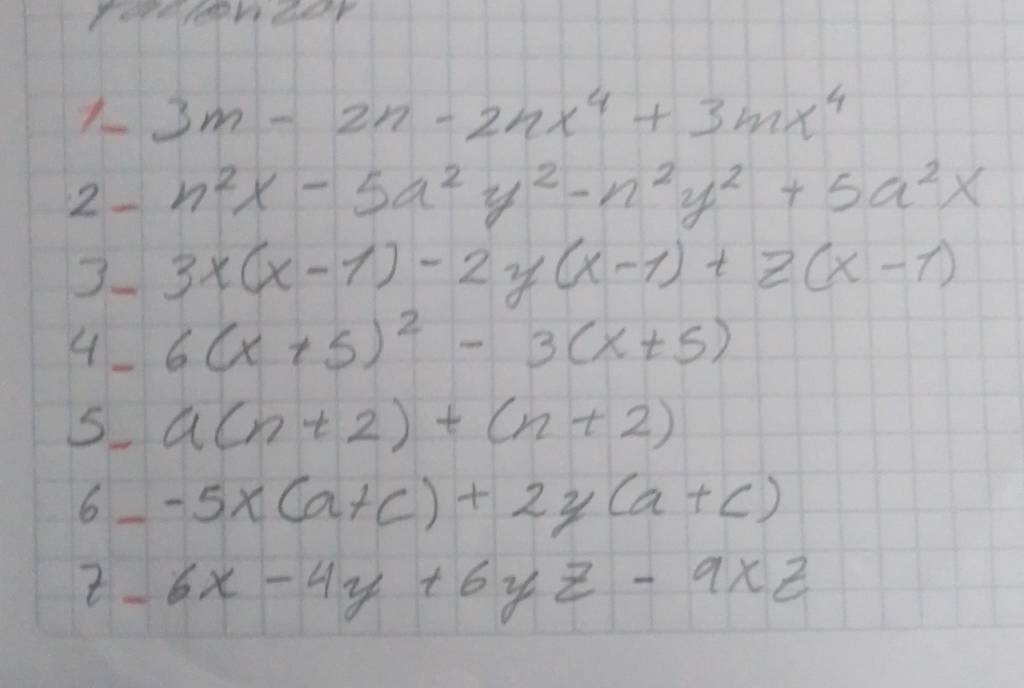 factorizar
1- 3m - 2n - 2nx⁴ + 3mx⁴
2- n²x - 5a²y² - n²y² + 5a²x
3- 3x(x-1) - 2y(x-1) + z(x-1)
4- 6(x+5)² - 3(x+5)
5- a(n+2) + (n+2)
6- -5x(a+c) + 2y(a+c)
7- 6x - 4y + 6yz - 9xz